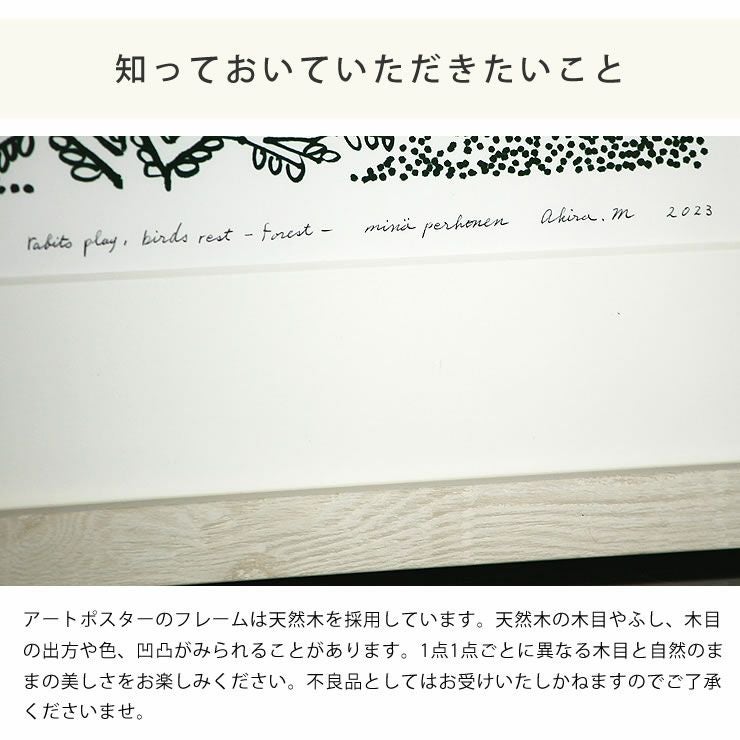 知っておいていただきたいこと
rabits play, birds rest - forest - minä perhonen Akira.M 2023
アートポスターのフレームは天然木を採用しています。天然木の木目やふし、木目
の出方や色、凹凸がみられることがあります。1点1点ごとに異なる木目と自然のま
まの美しさをお楽しみください。不良品としてはお受けいたしかねますのでご了承
くださいませ。